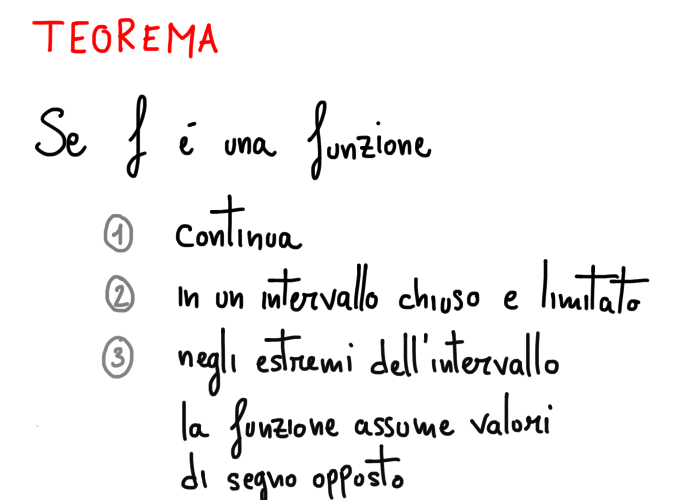 TEOREMA
Se f é una funzione
1 continua
2 in un intervallo chiuso e limitato
3 negli estremi dell'intervallo
la funzione assume valori
di segno opposto